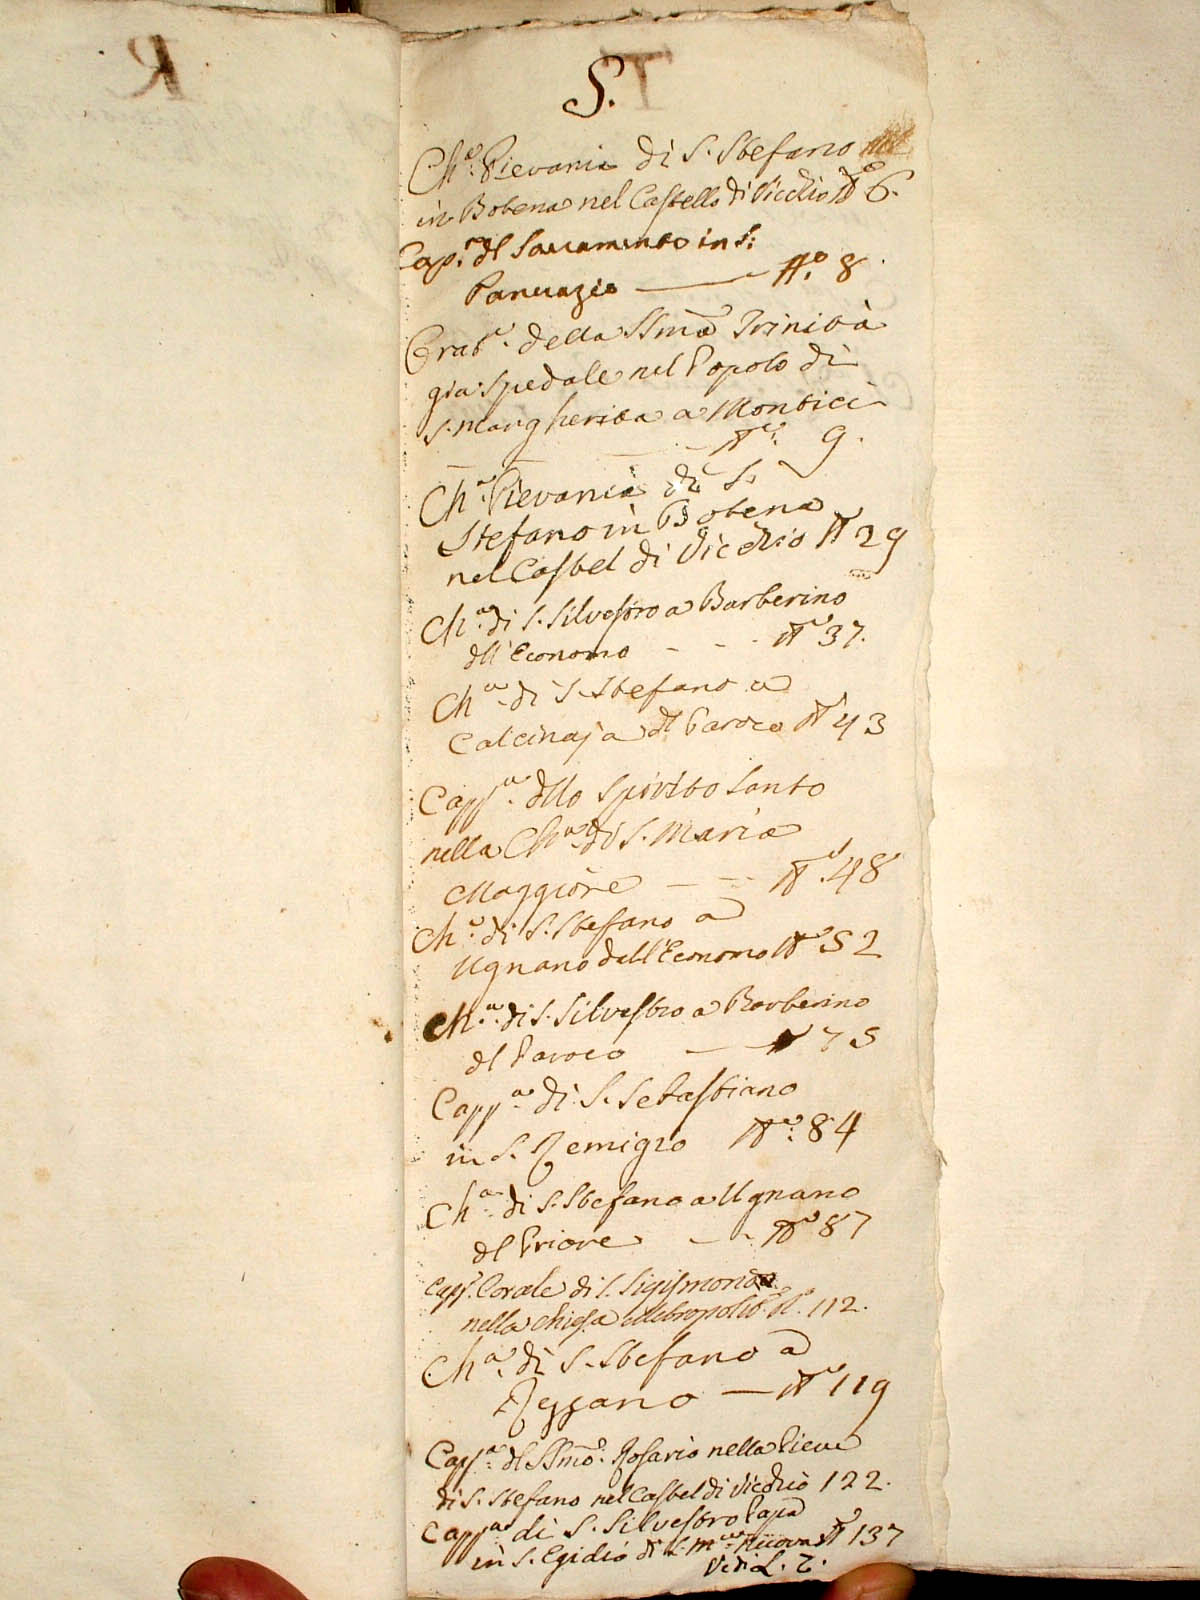 R
S.
Ch.a Pievania di S. Stefano
in Botena nel Castello di Vicchio N.o 6.
Cap.a del Sacramento in S.
Pancrazio —— N.o 8
della SSma Trinità
già Spedale nel Popolo di
S. Margherita a Montici
N.o 9.
Ch.a Pievania di S.
Stefano in Botena
nel Castel di Vicchio N.o 29
Ch.a di S. Silvestro a Barberino
dell'Economo - - - N.o 37.
Ch.a di S. Stefano a
Calcinaja del Paroco N.o 43
Capp.a dello Spirito Santo
nella Ch.a di S. Maria
Maggiore — — N.o 48
Ch.a di S. Stefano a
Ugnano dell'Economo N.o 52
Ch.a di S. Silvestro a Barberino
del Paroco —— N.o 75
Capp.a di S. Sebastiano
in S. Remigio N.o 84
Ch.a di S. Stefano a Ugnano
del Priore — - N.o 87
Capp.a Corale di S. Sigismondo
nella Chiesa Metropolit.a N.o 112.
Ch.a di S. Stefano a
Rezzano — N.o 119
Capp.a del SSmo. Rosario nella Pieve
di S. Stefano nel Castel di Vicchio 122.
Capp.a di S. Silvestro Papa
in S. Egidio di S. M.a Nuova N.o 137
Vedi L. T.